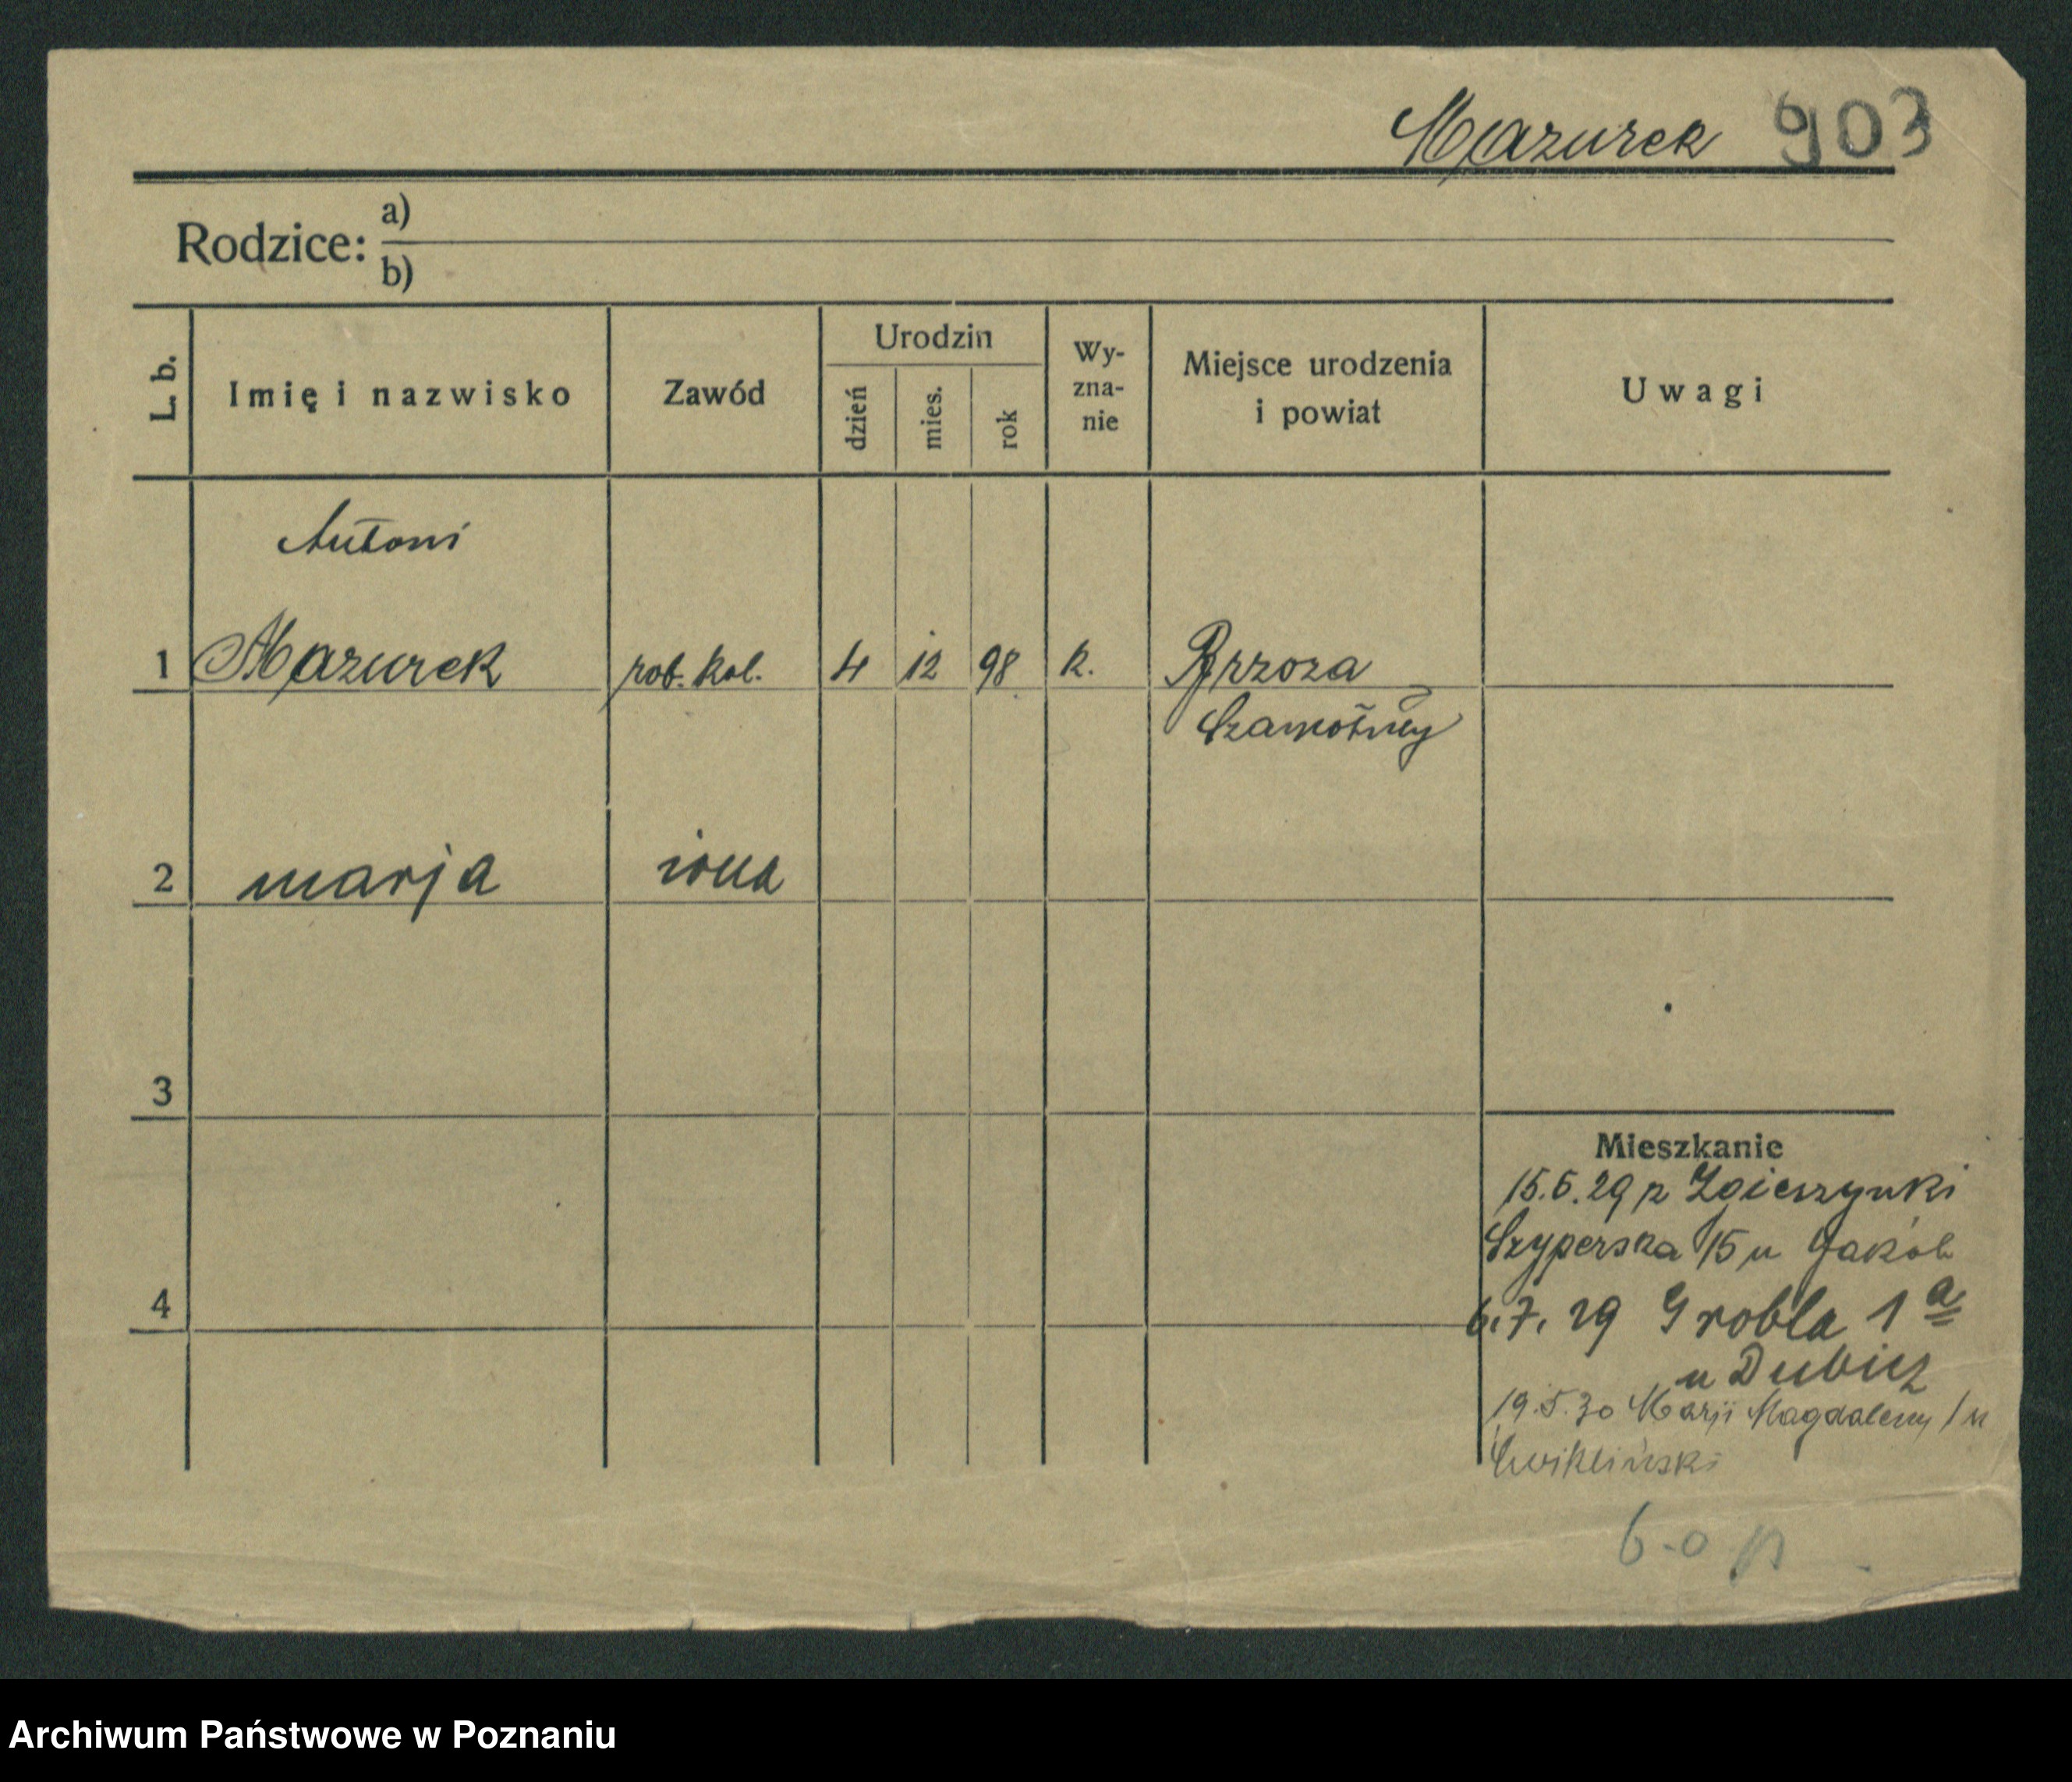 Mazurek 903
Rodzice: a)
b)
L. b. Imię i nazwisko Zawód Urodzin dzień mies. rok Wy-zna-nie Miejsce urodzenia i powiat Uwagi
Antoni
1 Mazurek rob. kol. 4 12 98 k. Brzoza
Szamotuły
2 marja żona
3
Mieszkanie
15.6.29 z
Szyperska 15 u Jakób
4
6.7.29 Grobla 1a
u Dubisz
19.5.30 Marji Magdaleny 1 u
Ćwikliński
Archiwum Państwowe w Poznaniu